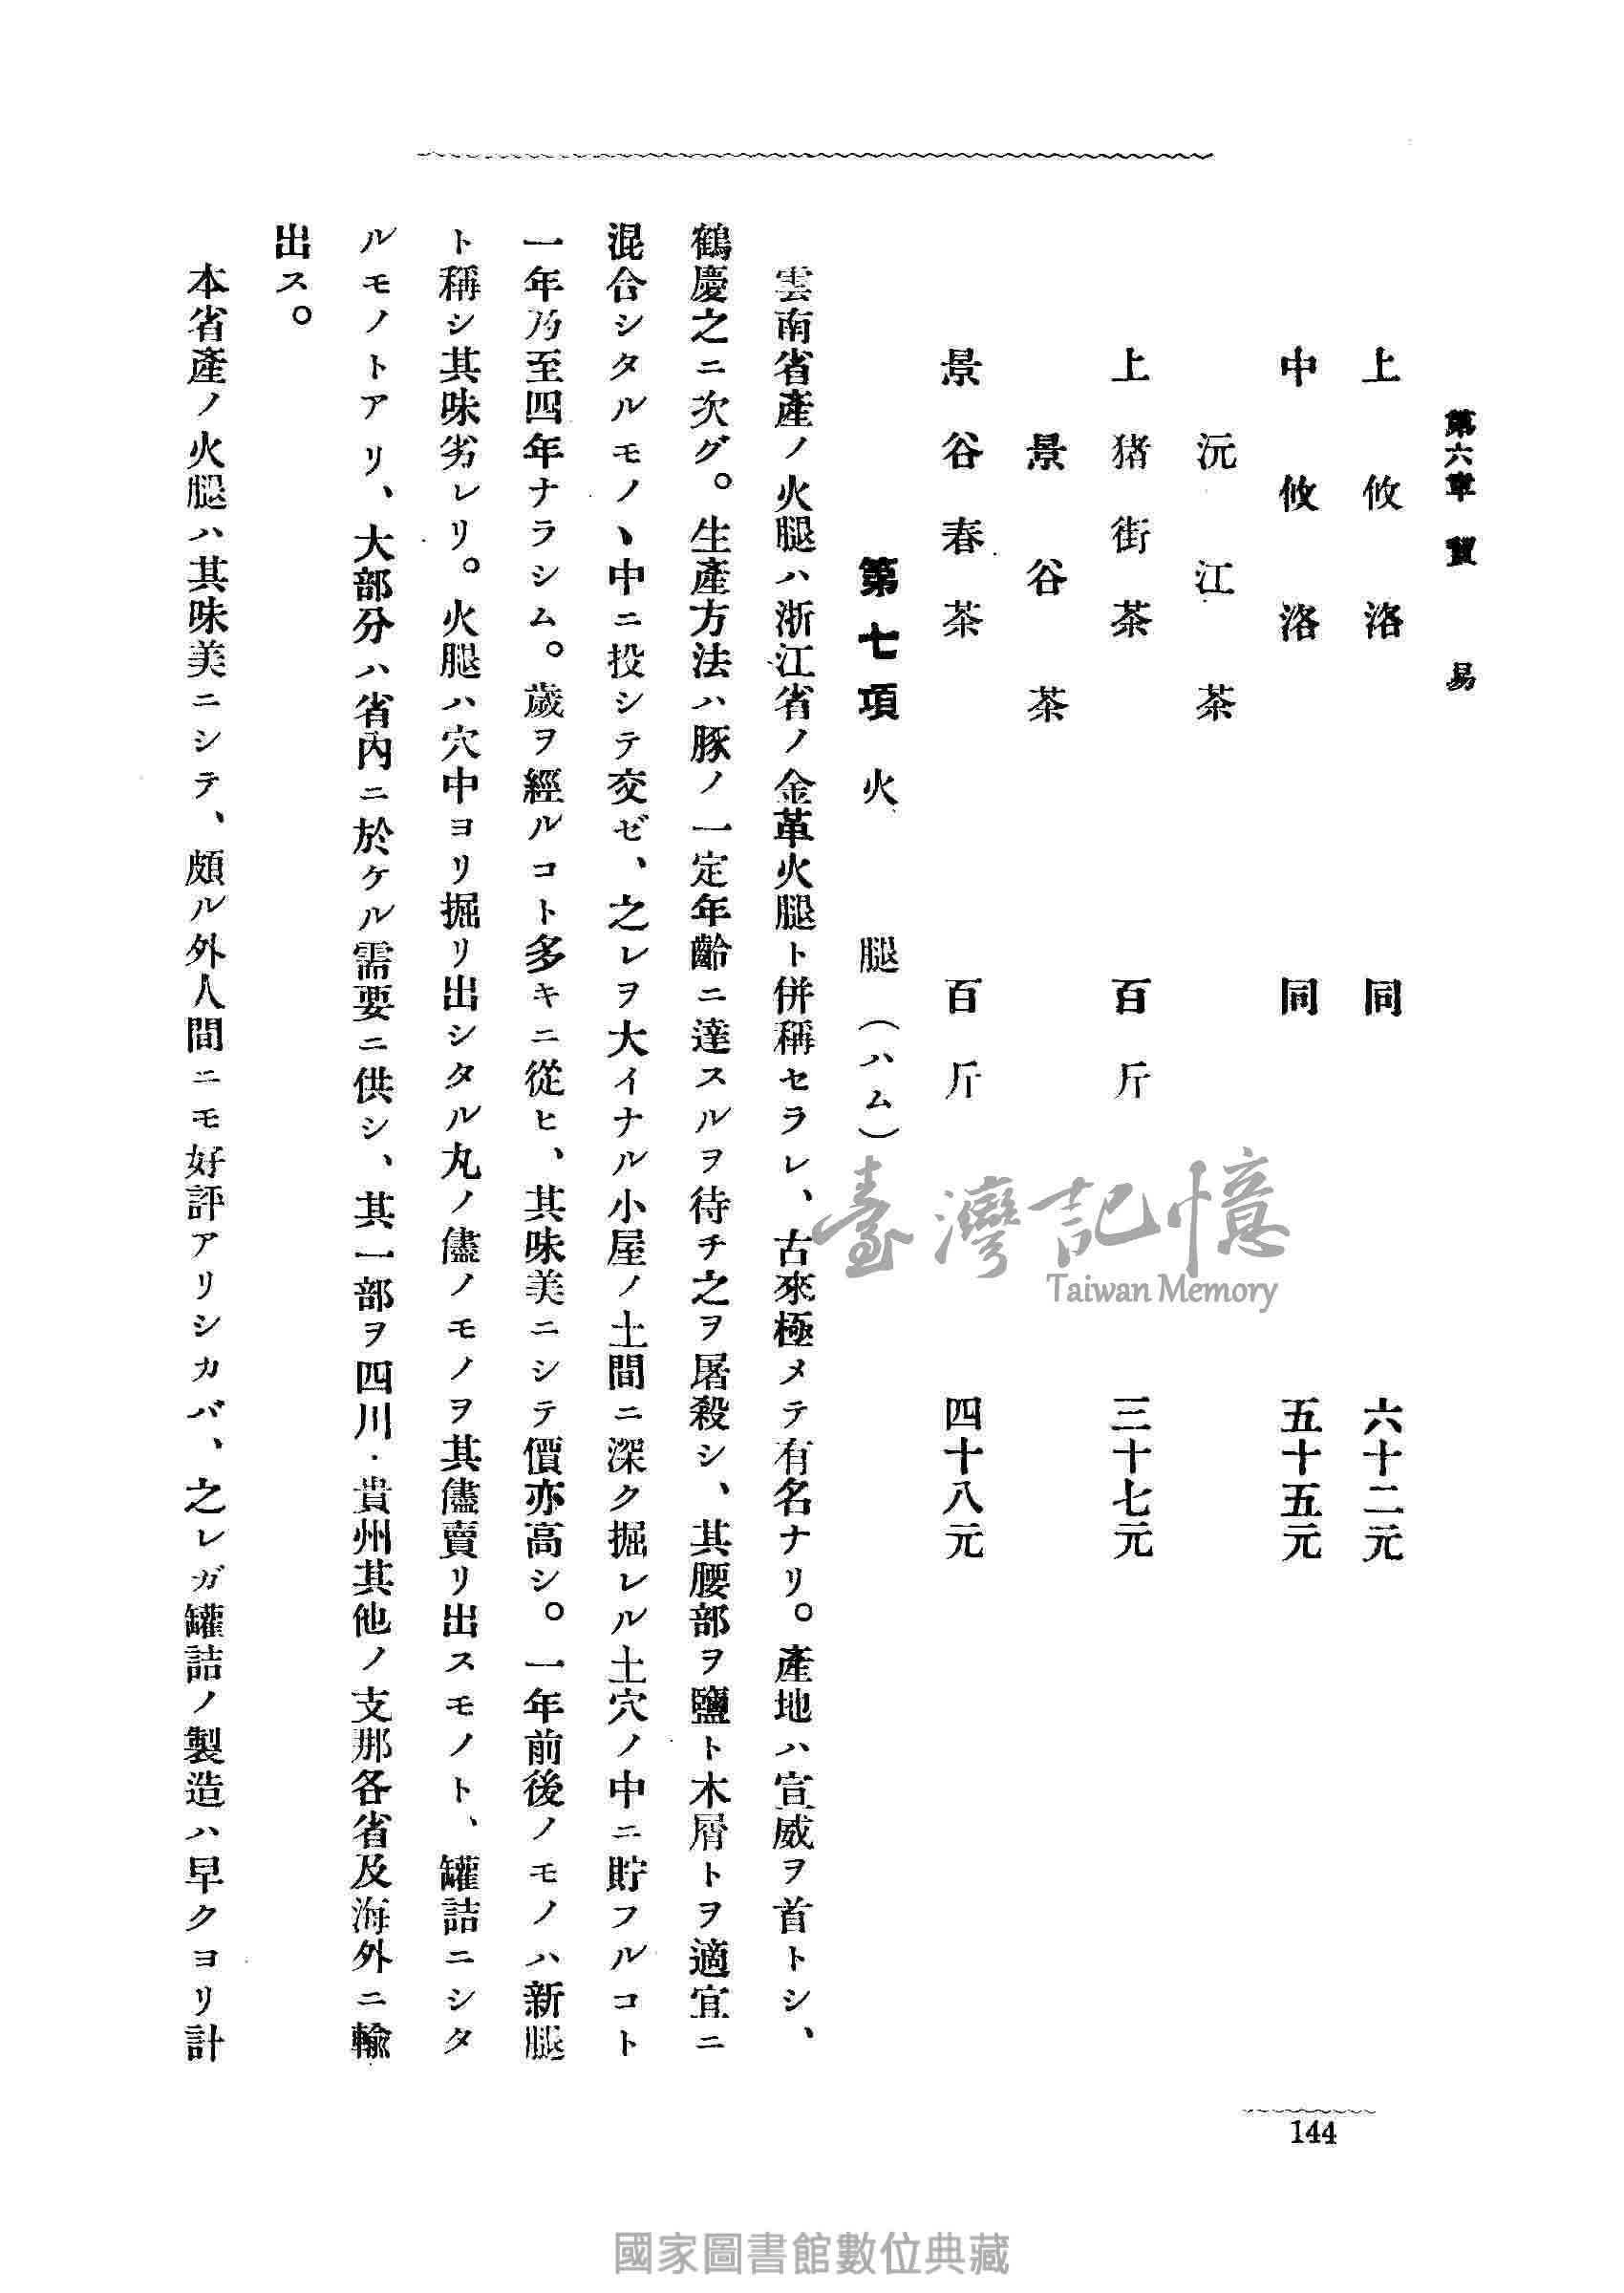 第六章　貿　易
上攸洛　同　六十二元
中攸洛　同　五十五元
沅江茶
上猪街茶　百斤　三十七元
景谷茶
景谷春茶　百斤　四十八元
第七項　火　腿（ハム）
雲南省產ノ火腿ハ浙江省ノ金革火腿ト併稱セラレ、古來極メテ有名ナリ。產地ハ宣威ヲ首トシ、
鶴慶之ニ次グ。生產方法ハ豚ノ一定年齡ニ達スルヲ待チ之ヲ屠殺シ、其腰部ヲ鹽ト木屑トヲ適宜ニ
混合シタルモノヽ中ニ投シテ交ゼ、之レヲ大イナル小屋ノ土間ニ深ク掘レル土穴ノ中ニ貯フルコト
一年乃至四年ナラシム。歲ヲ經ルコト多キニ從ヒ、其味美ニシテ價亦高シ。一年前後ノモノハ新腿
ト稱シ其味劣レリ。火腿ハ穴中ヨリ掘リ出シタル丸ノ儘ノモノヲ其儘賣リ出スモノト、罐詰ニシタ
ルモノトアリ、大部分ハ省內ニ於ケル需要ニ供シ、其一部ヲ四川・貴州其他ノ支那各省及海外ニ輸
出ス。
本省產ノ火腿ハ其味美ニシテ、頗ル外人間ニモ好評アリシカバ、之レガ罐詰ノ製造ハ早クヨリ計
144
臺灣記憶
Taiwan Memory
國家圖書館數位典藏